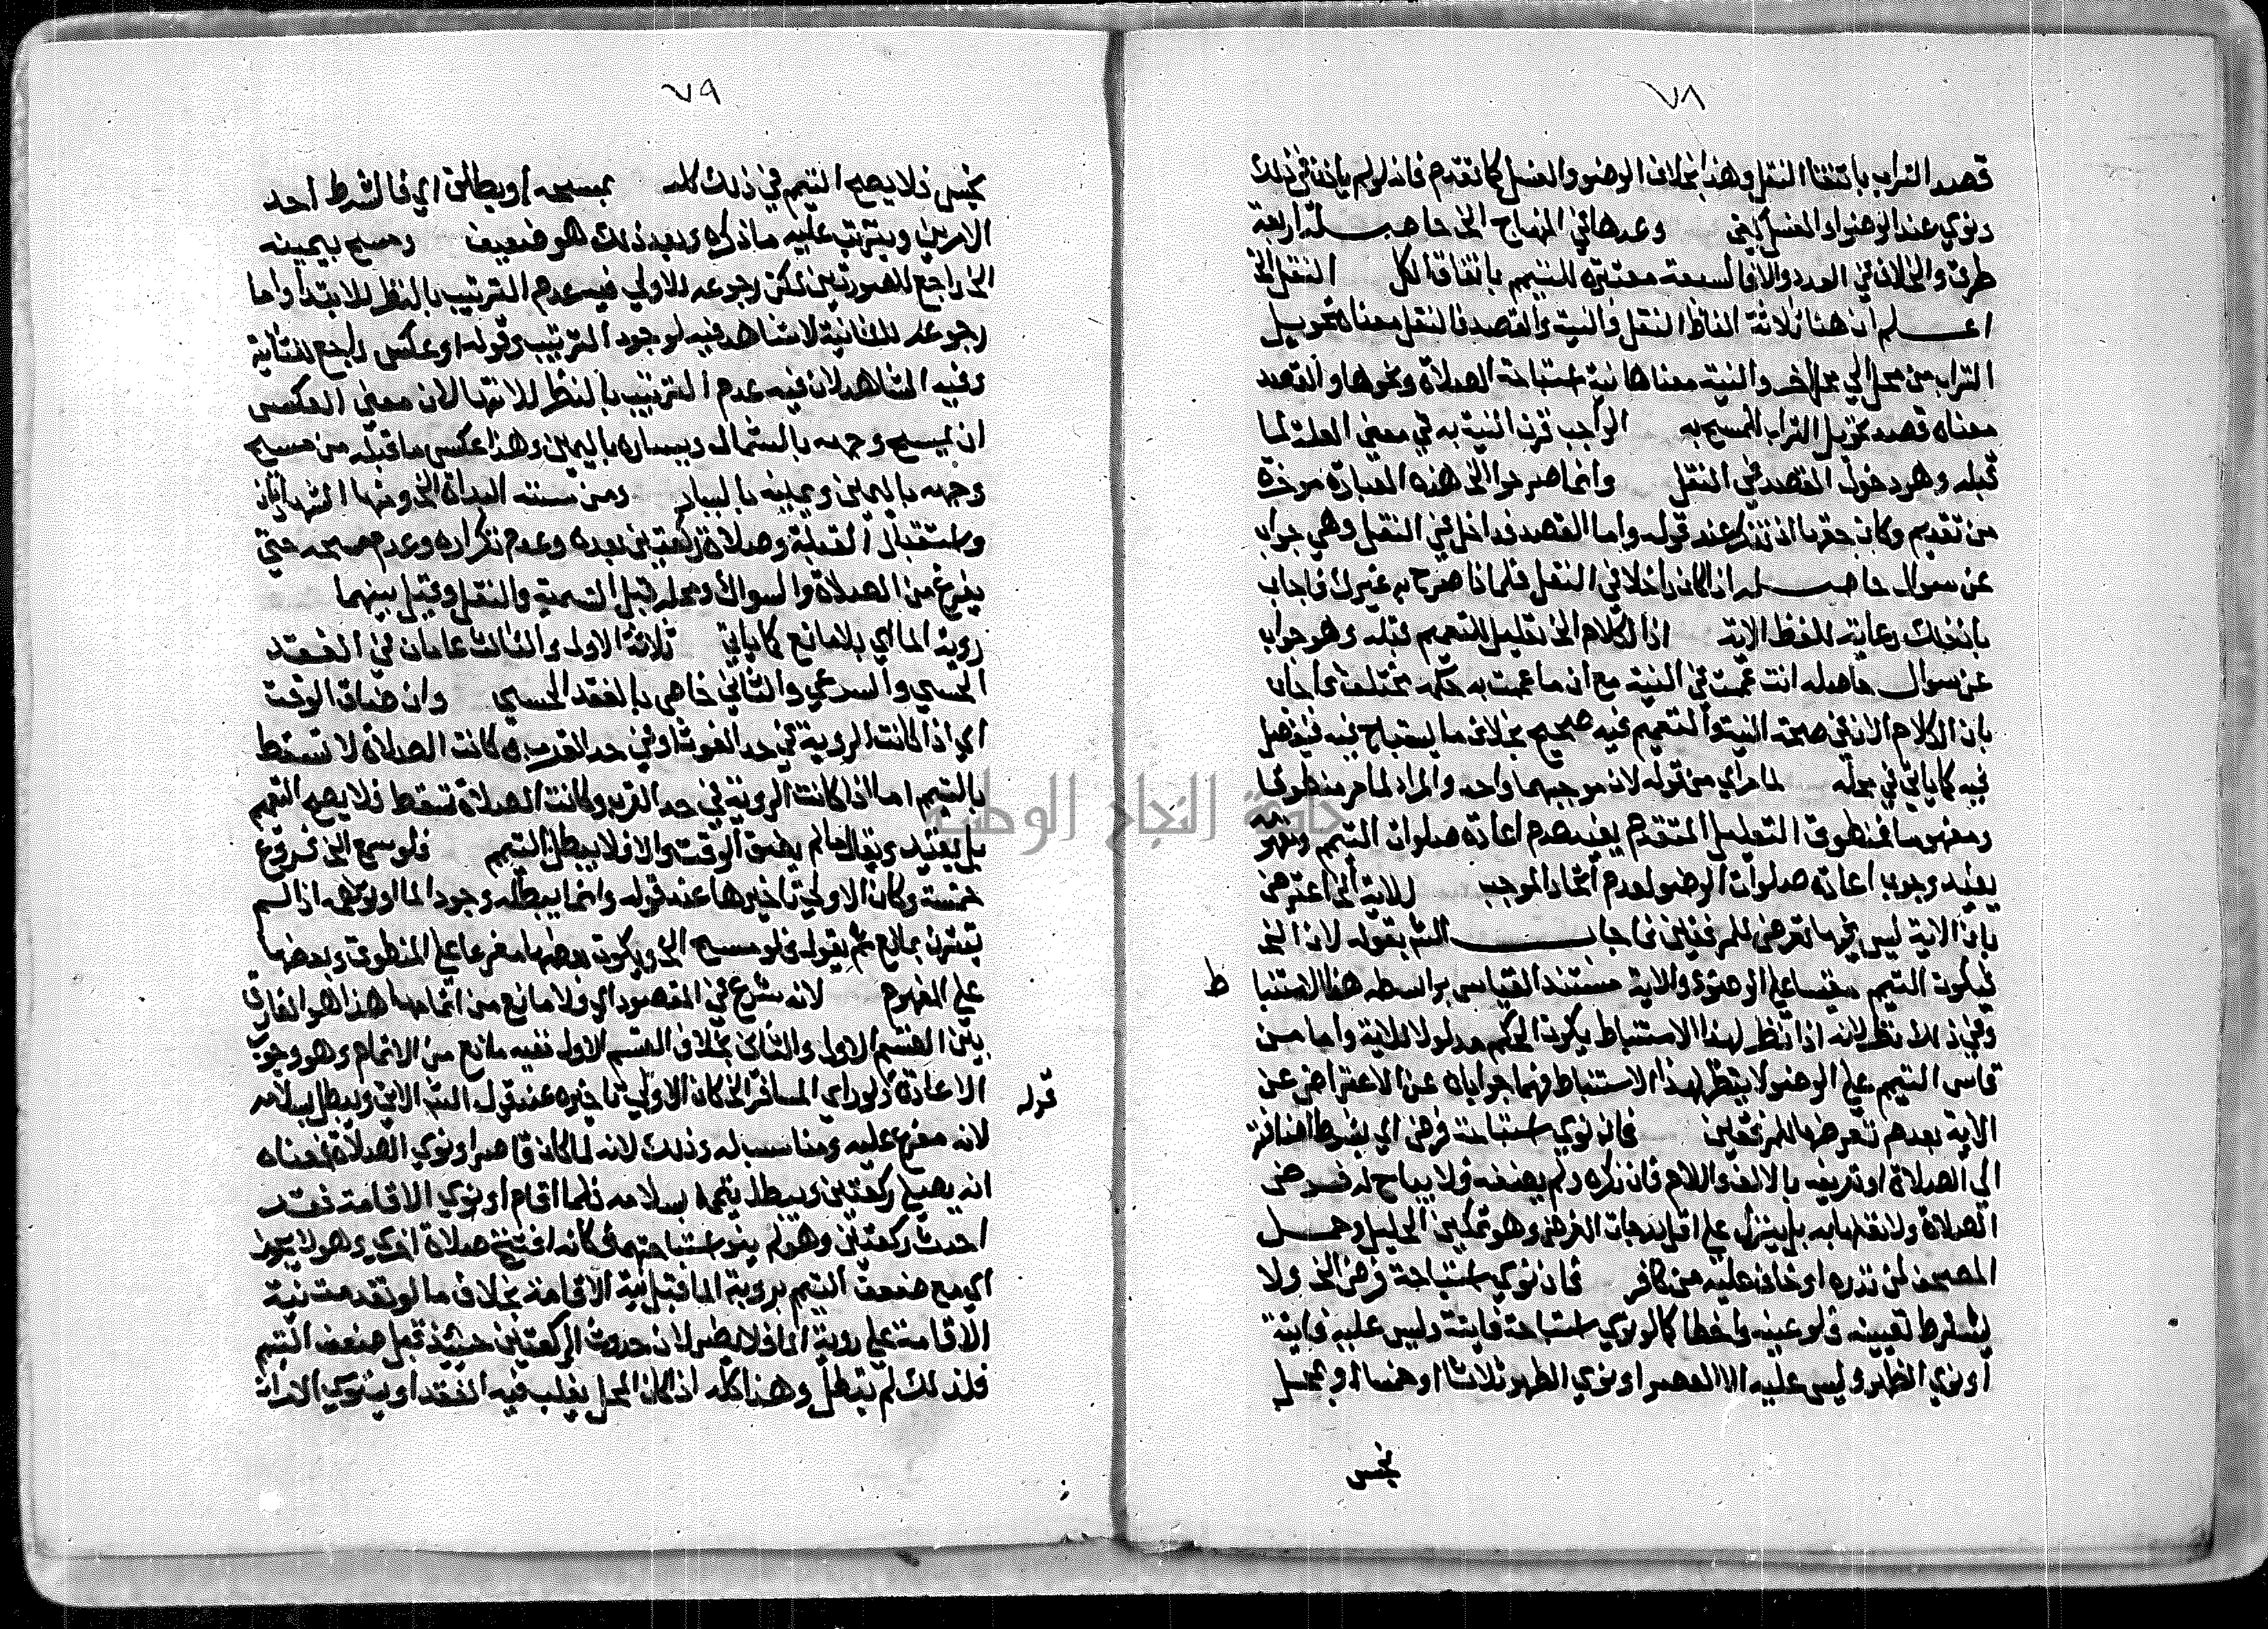 ٧٨
قصد التراب باتفقا النقل وهذا بخلاف الوضو والغسل كما تقدم فانه لو لم ياخذ في ذلك
ونوي عند الوضو او الغسل كفى وعدها في المنهاج الخ حاصله اربعة
طرق والخلاف في العدد والا فالسبعة معتبرة للتيمم باتفاق الكل النقل الخ
اعلم ان هنا ثلاثة الفاظ النقل والنية والقصد فالنقل معناه تحويل
التراب من محل الي محل اخر والنية معناها نية استباحة الصلاة ونحوها والقصد
معناه قصد تحويل التراب للمسح به الواجب قرن النية به في معنى العلة لما
قبله وهو دخول القصد في النقل وانما صرحوا الخ هذه العبارة موخرة
من تقديم وكان حقها ان تذكر عند قوله واما القصد فداخل في النقل وهي جواب
عن سوال حاصله اذا كان داخلا في النقل فلماذا صرح به غيرك فاجاب
بانه رعاية للفظ الاية اذ الكلام الخ تعليل للتعميم قبله وهو جواب
عن سوال حاصله انت عممت في النية مع ان ما عممت به حكمه مختلف فاجاب
بان الكلام الان في صحة النية والتعميم فيه صحيح بخلاف ما يستباح به ففيه تفصيل
فيه كما ياتي في محله لما مر اي من قوله لان موجبهما واحد والمراد لما مر منطوقا
ومفهوما فمنطوق التعليل المتقدم يفيد عدم اعادة صلوات التيمم ومفهومه
يفيد وجوب اعادة صلوات الوضو لعدم اتحاد الموجب للاية الخ اعترض
بان الاية ليس فيها تعرض للمرفقين فاجاب الش بقوله لان الخ
فيكون التيمم مقيسا علي الوضوء والاية مستند القياس بواسطة هذا الاستنبا
ط
وفي ذلك نظر لانه اذا نظر لهذا الاستنباط يكون الحكم مدلولا للاية واما من
قاس التيمم علي الوضو لا ينظر لهذا الاستنباط فهما جوابان عن الاعتراض عن
الاية بعدم تعرضها للمرفقين فان نوي استباحة فرض اي بشرط اضافته
الي الصلاة او تعريفه بالالف واللام فان نكره ولم يضفه فلا يباح له فرض
الصلاة ولا نفلها به بل ينزل علي اقل درجات الفرض وهو تمكين الحليل وحمل
المصحف لمن نذره او خاف عليه من كافر فان نوي استباحة فرض الخ ولا
يشترط تعيينه فلو عينه واخطا كما لو نوي استباحة فايتة وليس عليه فايتة
او نوي الظهر وليس عليه الا العصر او نوي الظهر ثلاثا او خمسا او بمحل
نجس
٧٩
نجس فلا يصح التيمم في ذلك كله بمسحه او يطلق اي فالشرط احد
الامرين ويترتب عليه ما ذكره وبعد ذلك هو ضعيف ومسح بيمينه
الخ راجع للصورتين لكن رجوعه للاولي فيه عدم الترتيب بالنظر للابتدا واما
رجوعه للثانية لا شاهد فيه لوجود الترتيب وقوله او عكس راجع للثانية
وفيه الشاهد لان فيه عدم الترتيب بالنظر للانتها لان معنى العكس
ان يمسح وجهه بالشمال ويساره باليمين وهذا عكس ما قبله من مسح
وجهه باليمين ويمينه باليسار ومن سننه البداة الخ ومنها الشهادتان
واستقبال القبلة وصلاة ركعتين بعده وعدم تكراره وعدم مسحه حتى
يفرغ من الصلاة والسواك ومحله قبل التسمية والنقل وقيل بينهما
روية الما اي بلا مانع كما ياتي ثلاثة الاول والثالث عامان في الفقد
الحسي والشرعي والثاني خاص بالفقد الحسي وان ضاق الوقت
اي اذا كانت الروية في حد الغوث او في حد القرب وكانت الصلاة لا تسقط
بالتيمم اما اذا كانت الروية في حد القرب وكانت الصلاة تسقط فلا يصح التيمم
بل يقيد ويقال ما لم يضق الوقت والا فلا يبطل التيمم فلو سمع الخ فروع
خمسة وكان الاولي تاخيرها عند قوله وانما يبطله وجود الما او توهمه اذا لم
يقترن بمانع ثم يقول فلو سمع الخ ويكون بعضها مفرعا علي المنطوق وبعضها
علي المفهوم لانه شرع في المقصود اي ولا مانع من اتمامها هذا هو الفارق
بين القسم الاول والثاني بخلاف القسم الاول ففيه مانع من الاتمام وهو وجوب
الاعادة ولو راي المسافر الخ كان الاولي تاخيره عند قول الش الاتي ويبطل بسلامه
قوله
لانه مفرع عليه ومناسب له وذلك لانه لما كان قاصرا ونوي الصلاة فمعناه
انه يصلي ركعتين ويبطل تيممه بسلامه فلما اقام او نوي الاقامة فقد
احدث ركعتين وهو لم ينو استباحتهما فكانه افتتح صلاة اخري وهو لا يجوز
اي مع ضعف التيمم بروية الما قبل نية الاقامة بخلاف ما لو تقدمت نية
الاقامة علي روية الما فلا يضر لان حدوث الركعتين حينئذ قبل ضعف التيمم
فلذلك لم تبطل وهذا كله اذا كان المحل يغلب فيه الفقد او يستوي الامران
جامعة النجاح الوطنية